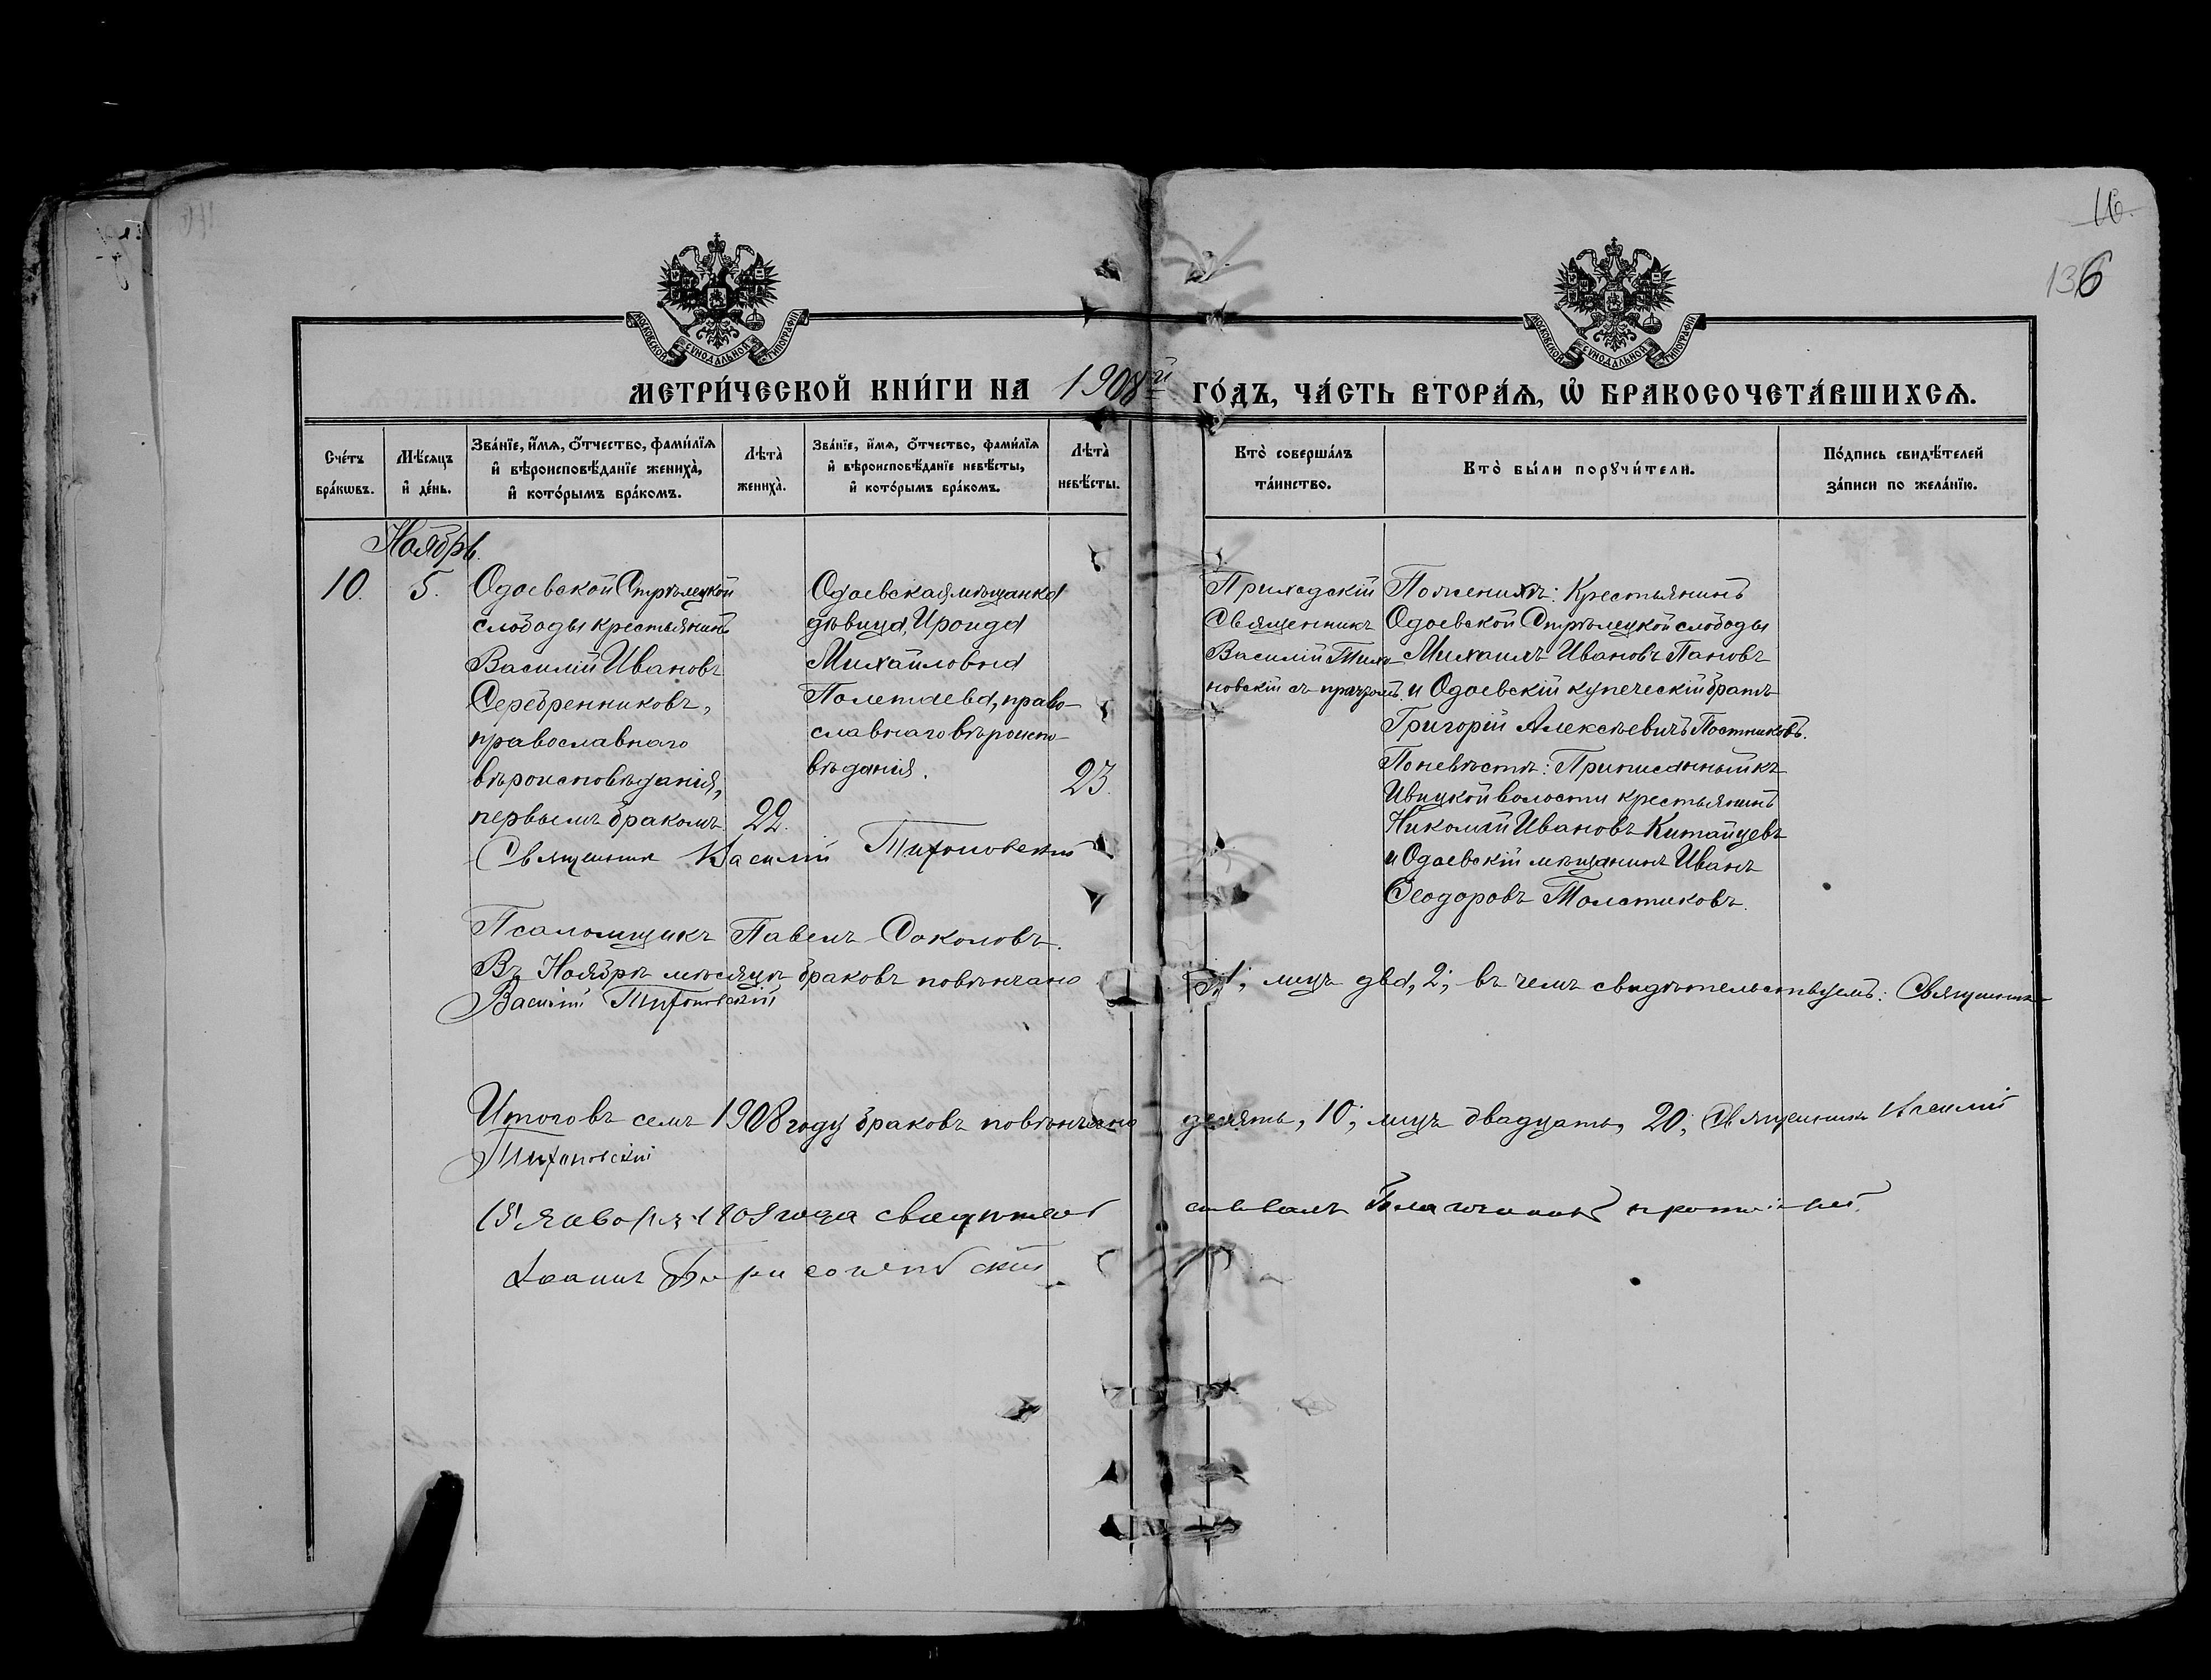 16.
136
МОСКОВСКОЙ СѴНОДАЛЬНОЙ ТИПОГРАФІИ
МОСКОВСКОЙ СѴНОДАЛЬНОЙ ТИПОГРАФІИ
МЕТРИ́ЧЕСКОЙ КНИ́ГИ НА 1908й ГО́ДЪ, ЧА́СТЬ ВТОРА́Ѧ, Ѡ҆ БРАКОСОЧЕТА́ВШИХСѦ.
Сче́тъ
бра́кѡвъ.
Мѣ́сяцъ
и҆ де́нь.
Зва́нїе, и҆́мѧ, Ѻ҆́тчество, фами́лїѧ
и҆ вѣроисповѣ́данїе жениха̀,
и҆ кото́рымъ бра́комъ.
Лѣта̀
жениха̀.
Зва́нїе, и҆́мѧ, Ѻ҆́тчество, фами́лїѧ
и҆ вѣроисповѣ́данїе невѣ́сты,
и҆ кото́рымъ бра́комъ.
Лѣта̀
невѣ́сты.
Кто̀ соверша́лъ
та́инство.
Кто̀ бы́ли порꙋчи́тели.
По́дпись свидѣ́телей
за́писи по жела́нїю.
Ноябрь.
10.
5.
Одоевской Стрѣлецкой
слободы крестьянинъ
Василій Ивановъ
Серебренниковъ,
православнаго
вѣроисповѣданія,
первымъ бракомъ
22.
Одоевская мѣщанка
дѣвица, Ироида
Михайловна
Полетаева, право-
славнаго вѣроиспо-
вѣданія.
23.
Приходскій
Священникъ
Василій Тихо-
новскій съ причтомъ.
По женихѣ: Крестьянинъ
Одоевской Стрѣлецкой слободы
Михаилъ Ивановъ Пановъ
и Одоевскій купеческій братъ
Григорій Алексѣевичъ Постниковъ.
По невѣстѣ: Приписанный къ
Ивицкой волости крестьянинъ
Николай Ивановъ Китайцевъ
и Одоевскій мѣщанинъ Иванъ
Ѳеодоровъ Толстиковъ.
Священникъ Василій Тихоновскій
Псаломщикъ Павелъ Соколовъ.
Въ Ноябрѣ мѣсяцѣ браковъ повѣнчано 1; лицъ два, 2; въ чемъ свидѣтельствуемъ: Священникъ
Василій Тихоновскій
Итого въ семъ 1908 году браковъ повѣнчано десять, 10; лицъ двадцать, 20; Священникъ Василій
Тихоновскій
Января 1909 года свидѣтельствовалъ Благочинный протоіерей
Іоаннъ